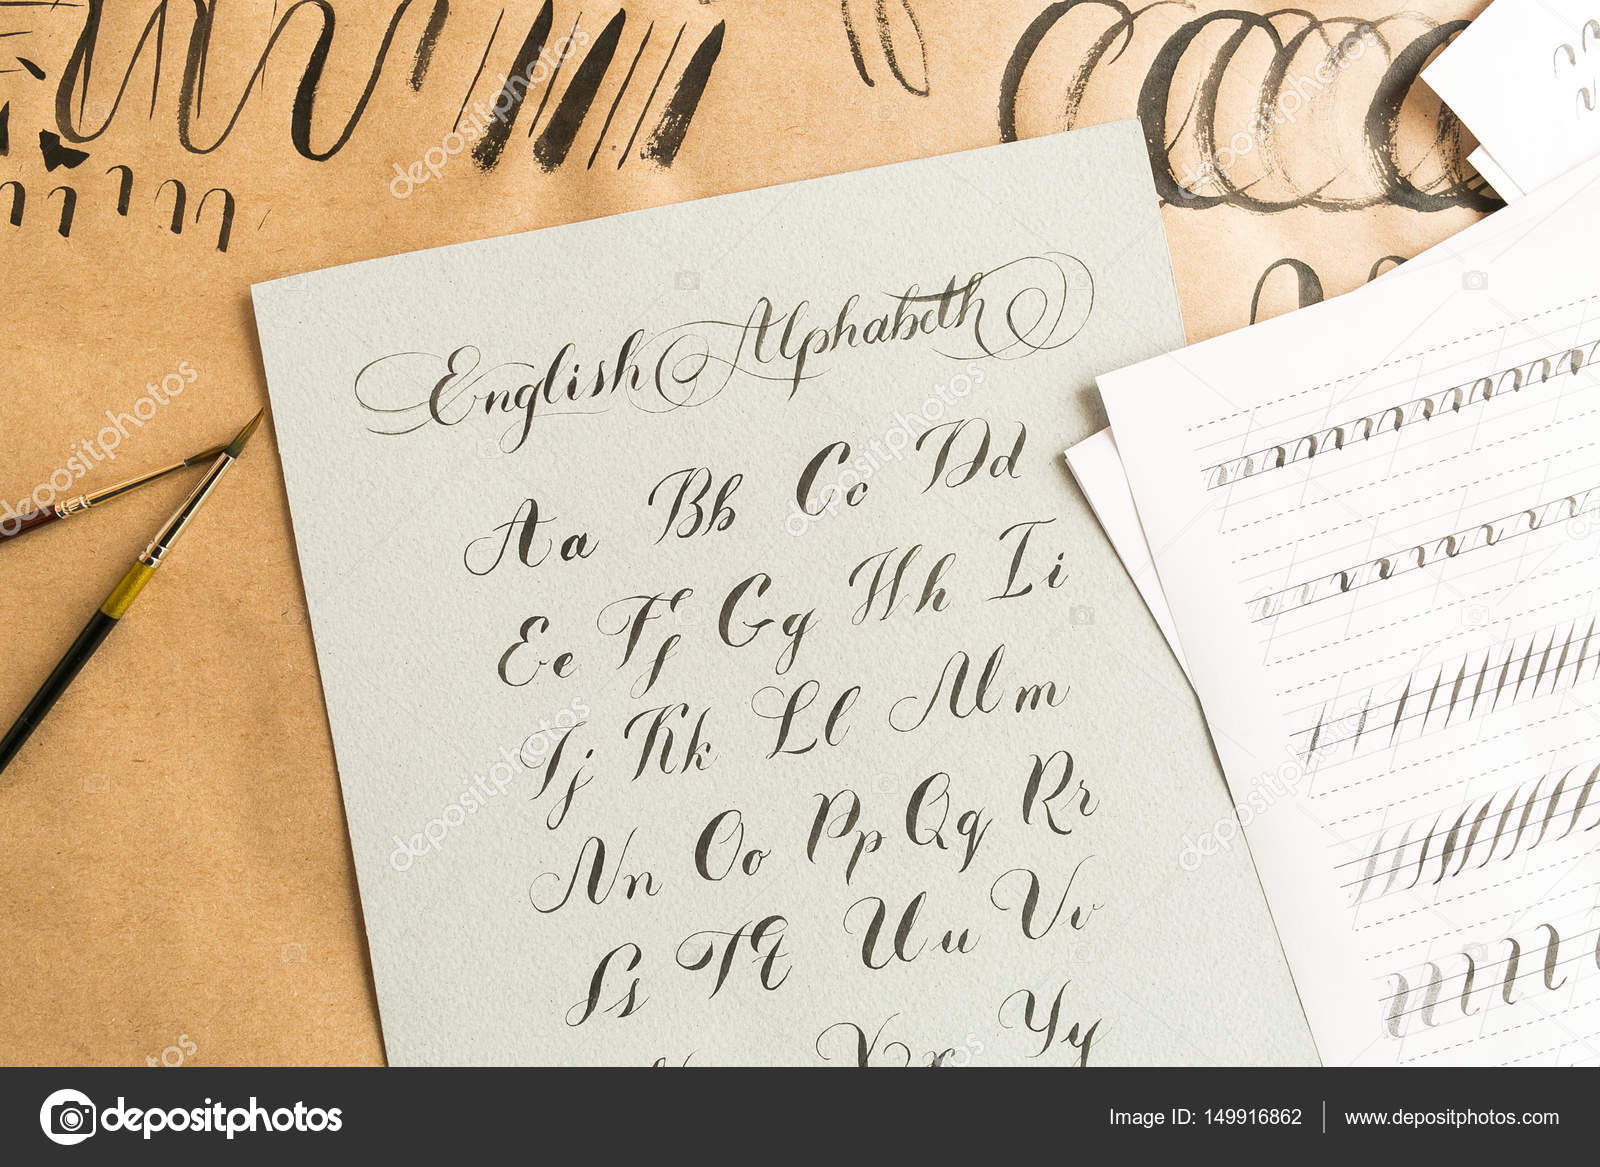 English Alphabeth
Aa Bb Cc Dd
Ee Ff Gg Hh Ii
Jj Kk Ll Mm
Nn Oo Pp Qq Rr
Ss Tt Uu Vv
Xx Yy
depositphotos
Image ID: 149916862 www.depositphotos.com